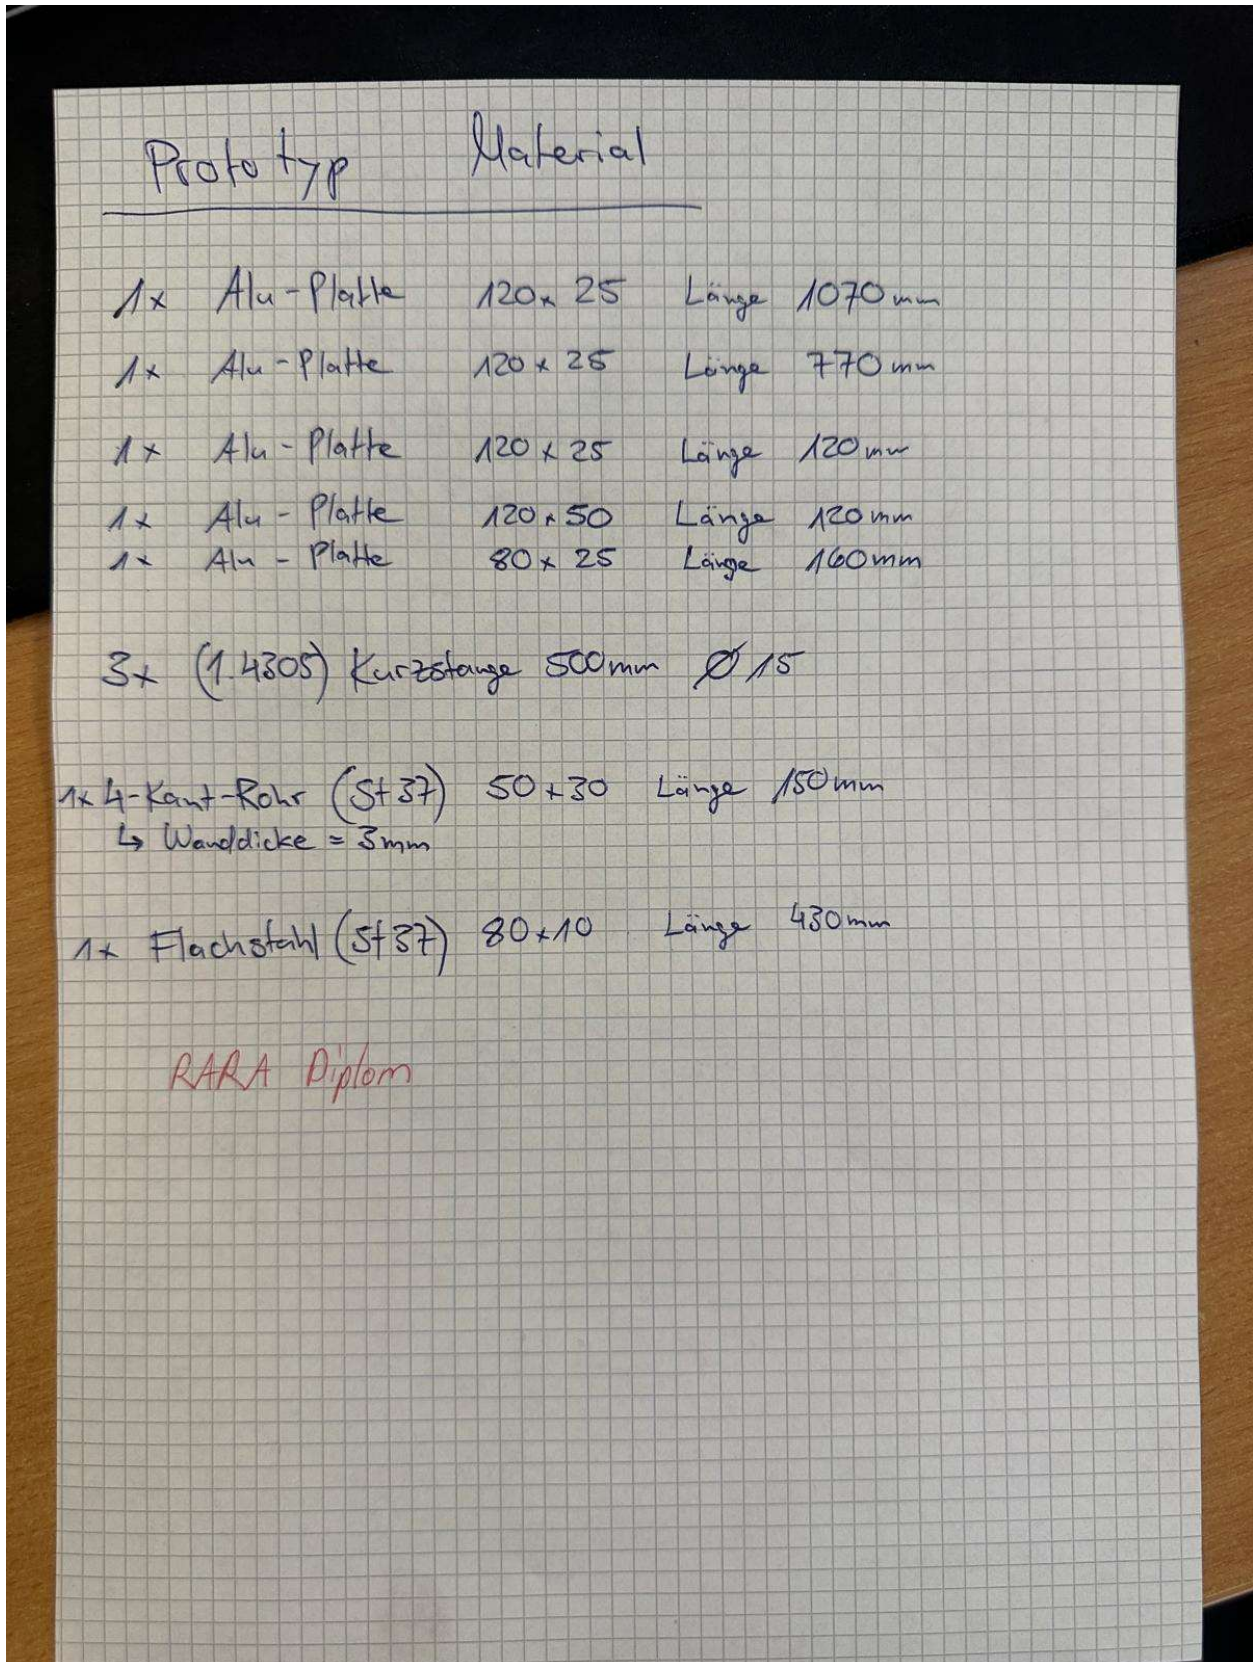 Prototyp Material
1x Alu-Platte 120x25 Länge 1070mm
1x Alu-Platte 120x25 Länge 770mm
1x Alu-Platte 120x25 Länge 120mm
1x Alu-Platte 120x50 Länge 120mm
1x Alu-Platte 80x25 Länge 160mm
3x (1.4305) Kurzstange 500mm Ø15
1x 4-Kant-Rohr (St37) 50x30 Länge 150mm
↳ Wanddicke = 3mm
1x Flachstahl (St37) 80x10 Länge 430mm
RARA Diplom